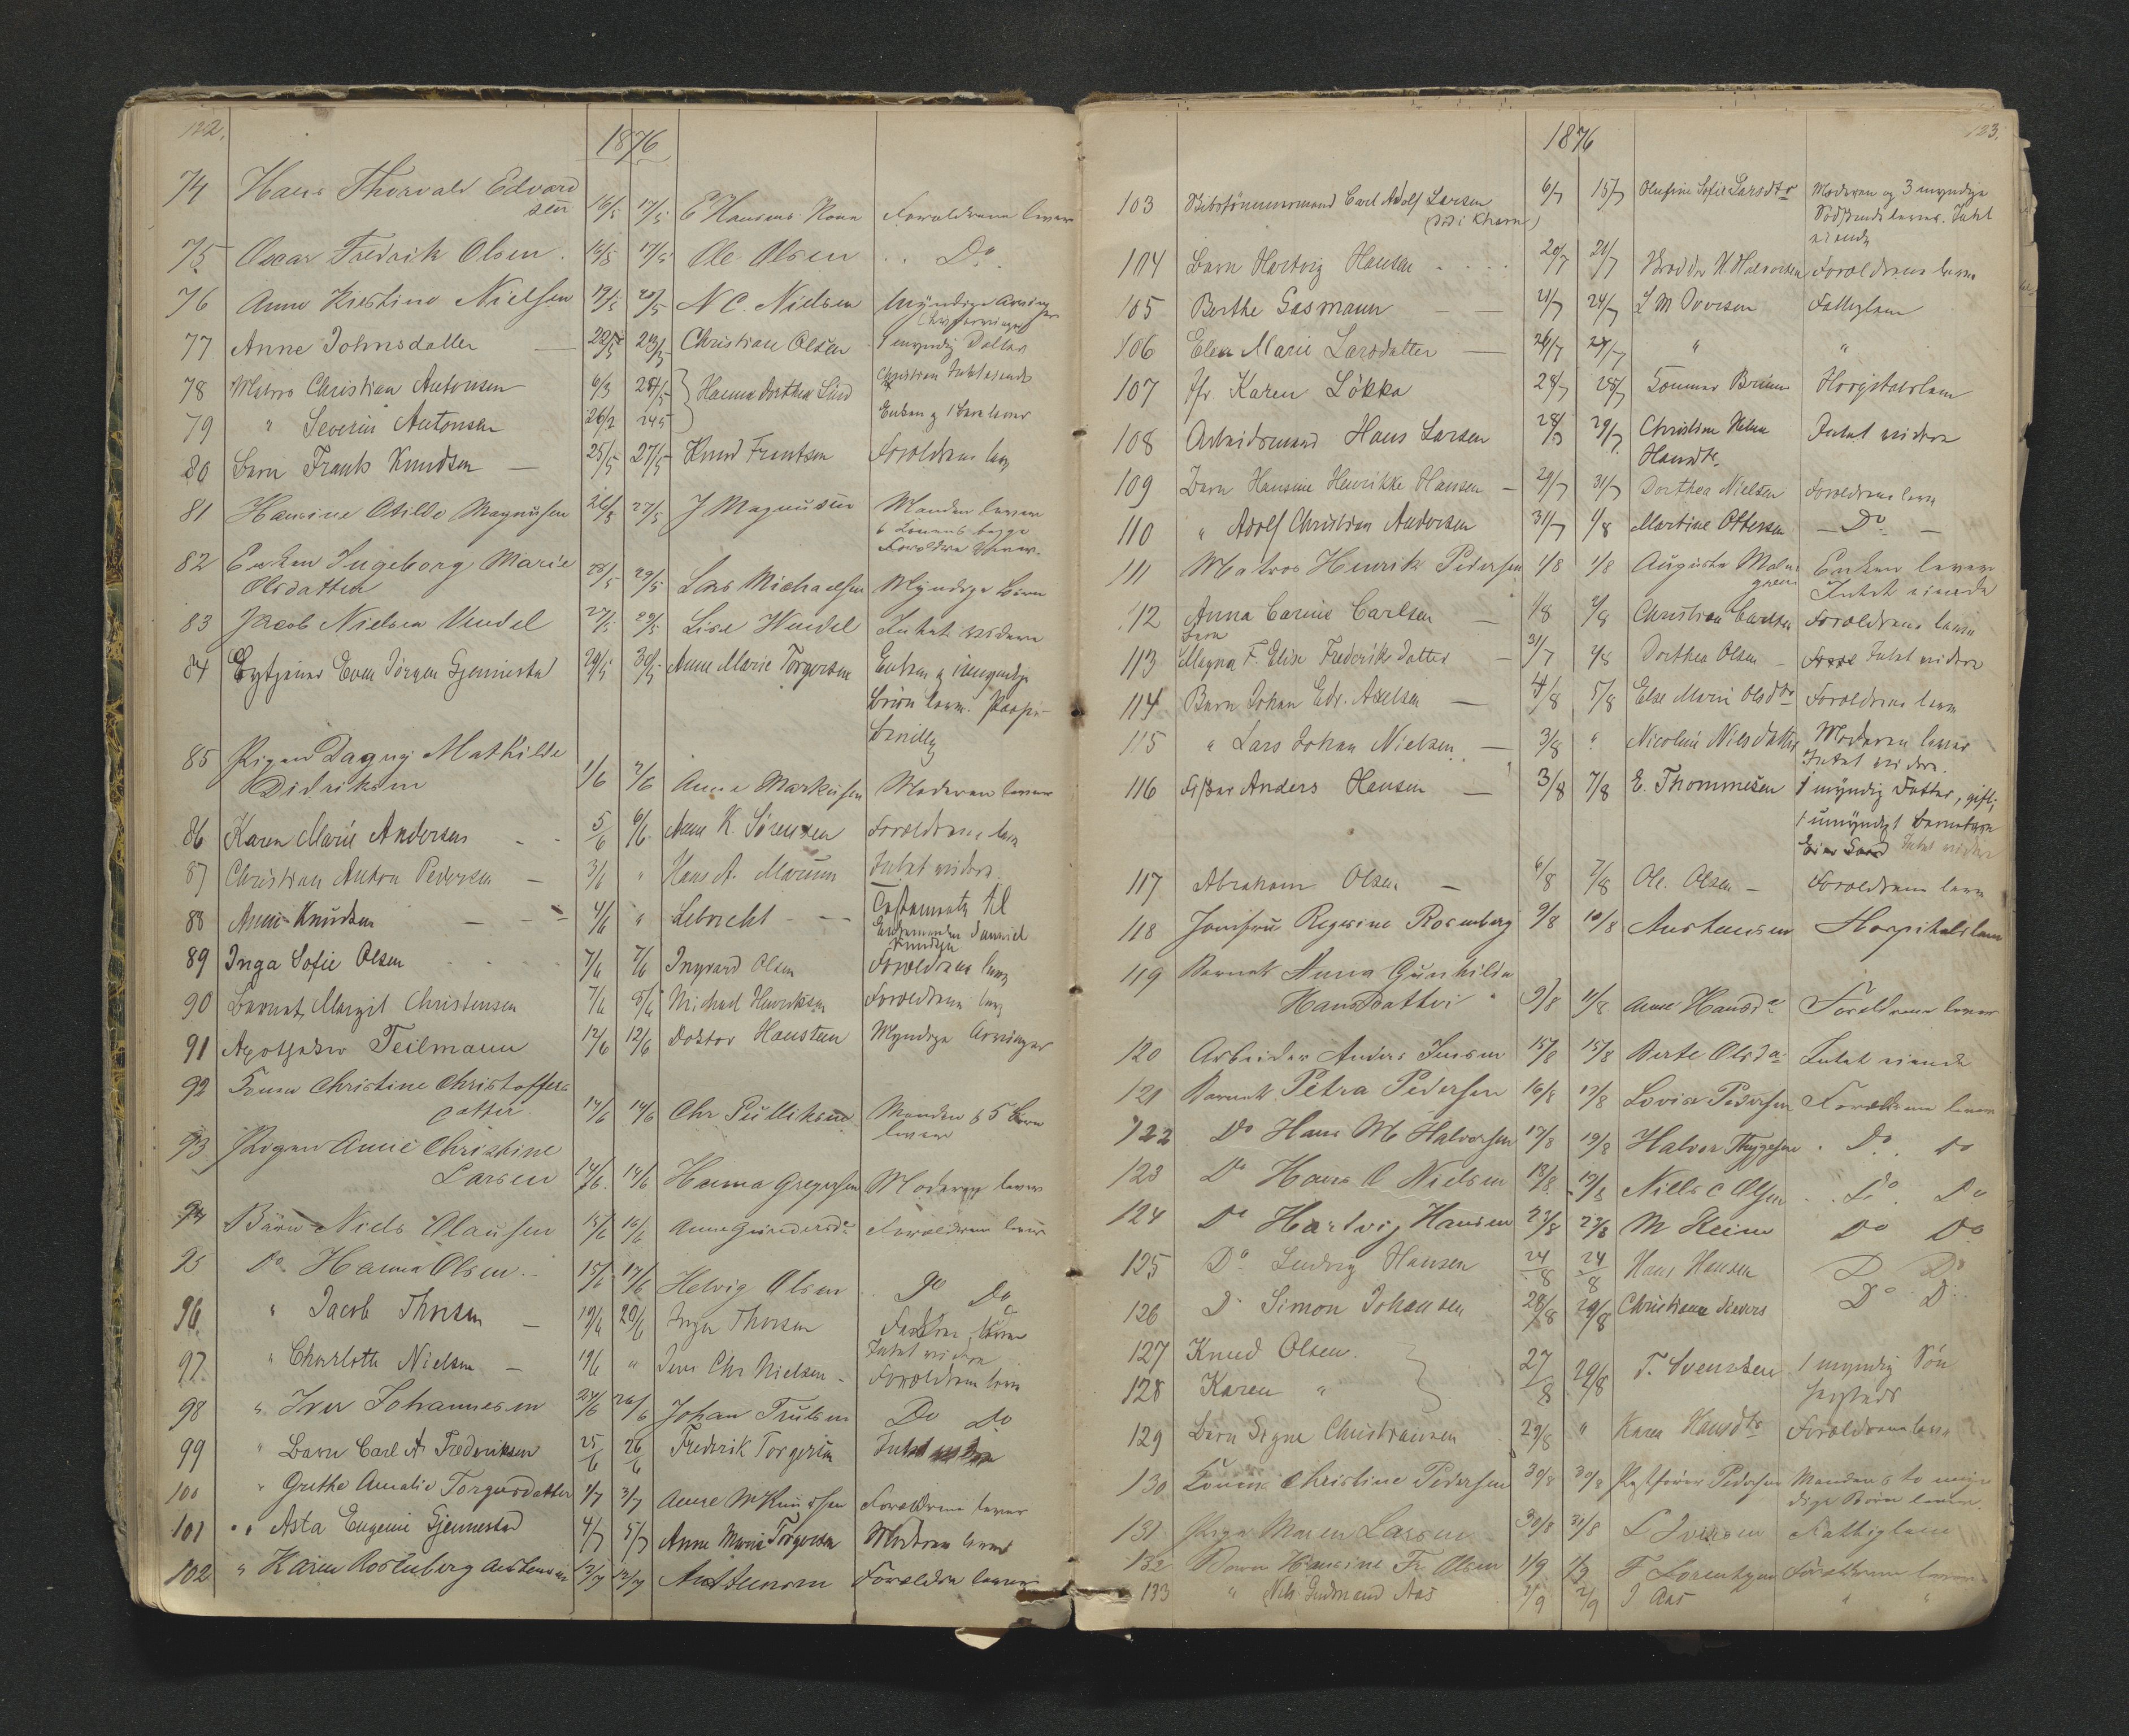 122.
1876
74 Hans Thorvald Edvard
sen 16/5 17/5 E Hansens Kone Forældrene lever
75 Oscar Fredrik Olsen. 16/5 17/5 Ole Olsen Do.
76 Anne Kirstine Nielsen 19/5 20/5 N C. Nielsen Myndige Arvinger
77 Anne Johnsdatter 22/5 23/5 Christian Olsen 1 myndig Datter
78 Matros Christian Antonsen 6/3 24/5 Hanna Dorthea Lind Intet eiende
79 " Severin Antonsen 26/2 24/5 Enken og 1 Barn lever
80 Barn Frants Knudsen 25/5 27/5 Knud Frantsen Forældrene lever
81 Hansine Otilde Magnusen 26/5 27/5 J Magnusen Manden lever
82 Enken Ingeborg Marie
Olsdatter 28/5 29/5 Lars Michaelsen Myndige Børn
83 Jacob Nielsen Wendel 27/5 29/5 Lise Wendel Intet videre
84 Even Jørgen Gjennestad 29/5 30/5 Anne Marie Torgersen Enken og umyndige
Børn lever.
85 Pigen Dagny Mathilde
Didriksen 1/6 2/6 Anne Markusen Moderen lever
86 Karen Marie Andersen 5/6 6/6 Anne K. Sørensen Forældrene lever
87 Christian Anton Pedersen 3/6 " Hans A. Intet videre.
88 Anne Knudsen 4/6 " Lebrecht Testamente til
89 Inga Sofie Olsen 7/6 7/6 Ingvard Olsen Forældrene lever
90 Barnet Margit Christensen 7/6 8/6 Michael Henriksen Forældrene lever
91 Apotheker Teilmann 12/6 12/6 Doktor Hansteen Myndige Arvinger
92 Konen Christine Christoffers
datter 14/6 Chr Pellitsen Manden & 5 Børn
lever
93 Pigen Anne Christine
Larsen 14/6 14/6 Hanna Gregersen Moderen lever
94 Barn Niels Olausen 15/6 16/6 Forældrene lever
95 Do Hanna Olsen 15/6 17/6 Helvig Olsen Do Do
96. " Jacob Thorsen 19/6 20/6 Inger Thorsen
Intet videre
97. " Charlotte Nielsen 19/6 " Jens Chr Nielsen Forældrene lever
98 " Iver Johannesen 24/6 26/6 Johan Trulsen Do Do
99 " Barn Carl A. Frederiksen 25/6 26/6 Fredrik Torgersen Intet
100 " Grethe Amalie Torgersdatter 1/7 3/7 Forældrene lever
101 " Asta Eugenie Gjennestad 4/7 5/7 Anne Marie Torgersen Moderen lever
102 " Karen Rosenberg Austensen 12/7 12/7 Austensen Forældre lever
123.
1876
103 Carl Adolf Larsen 6/7 15/7 Olufine Sofie Larsdtr Moderen og 3 myndige
Intet
eiende
104 Barn Hartvig Hansen 20/7 21/7 Forældrene lever
105 Berthe Gasmann 21/7 24/7 L M Iversen Fattiglem
106 Elen Marie Larsdatter 26/7 27/7 " "
107 Jfr. Karen Løkke 28/7 28/7 Tønnes Bruun Hospitalslem
108 Arbeidsmand Hans Larsen 28/7 29/7. Christine Helene
Hansdtr. Intet videre
109 Barn Hansine Henrikke Hansen 29/7 31/7 Dorthea Nielsen Forældrene lever
110 " Adolf Christian Andersen 31/7 1/8 Martine Ottersen Do
111 Matros Henrik Pedersen 1/8 1/8 Augusta Malm
green Enken lever
Intet eiende
112 Anna Carine Carlsen 1/8 2/8 Christian Carlsen Forældrene lever
Barn
113 Magna F. Elise Frederiksdatter 31/7 2/8 Dorthea Olsen Intet videre
114 Barn Johan Edv. Axelsen 4/8 5/8 Else Marie Olsdtr Forældrene lever
115 " Lars Johan Nielsen 3/8 " Nicoline Nilsdatter Moderen lever
Intet videre.
116 Fisker Anders Hansen 3/8 7/8 E. Thommesen 1 myndig Datter, gift,
1 umyndigt Barnebarn
Intet videre
117 Abraham Olsen 6/8 7/8 Ole Olsen Forældrene lever
118 Jomfru Regesine Rosenberg 9/8 10/8 Austensen Hospitalslem
119 Barnet Anna Gunhilde
Hansdatter 9/8 11/8 Anne Hansda Forældrene lever
120 Arbeider Anders Jensen 15/8 15/8 Berte Olsda Intet eiende
121 Barnet Petra Pedersen 16/8 17/8 Lovise Pedersen Forældrene lever
122 Do Hans M Halvorsen 17/8 19/8 Halvor Thygesen Do. Do
123 Do Hans C Nielsen 18/8 19/8 Niels C Olsen Do. Do
124 Do Hartvig Hansen 23/8 23/8 M Heim Do Do
125 Do Ludvig Hansen 24/8 24/8 Hans Hansen D Do
126 D. Simon Johansen 28/8 29/8 Christiane Do D.
127 Knud Olsen. 27/8 29/8 T. Svendsen 1 myndig Søn
128 Karen "
129 Barn Signe Christiansen 29/8 " Karen Hansdtr Forældrene lever
130 Konen Christine Pedersen 30/8 30/8 Pedersen Manden & to myn
dige Børn lever.
131 Pige Maren Larsen 30/8 31/8 L Iversen Fattiglem
132 Barn Hansine Fr. Olsen 1/9 1/9 F Lorentzen Forældrene lever
133 " Nils Gudmand Aas 2/9 2/9 J Aas " "